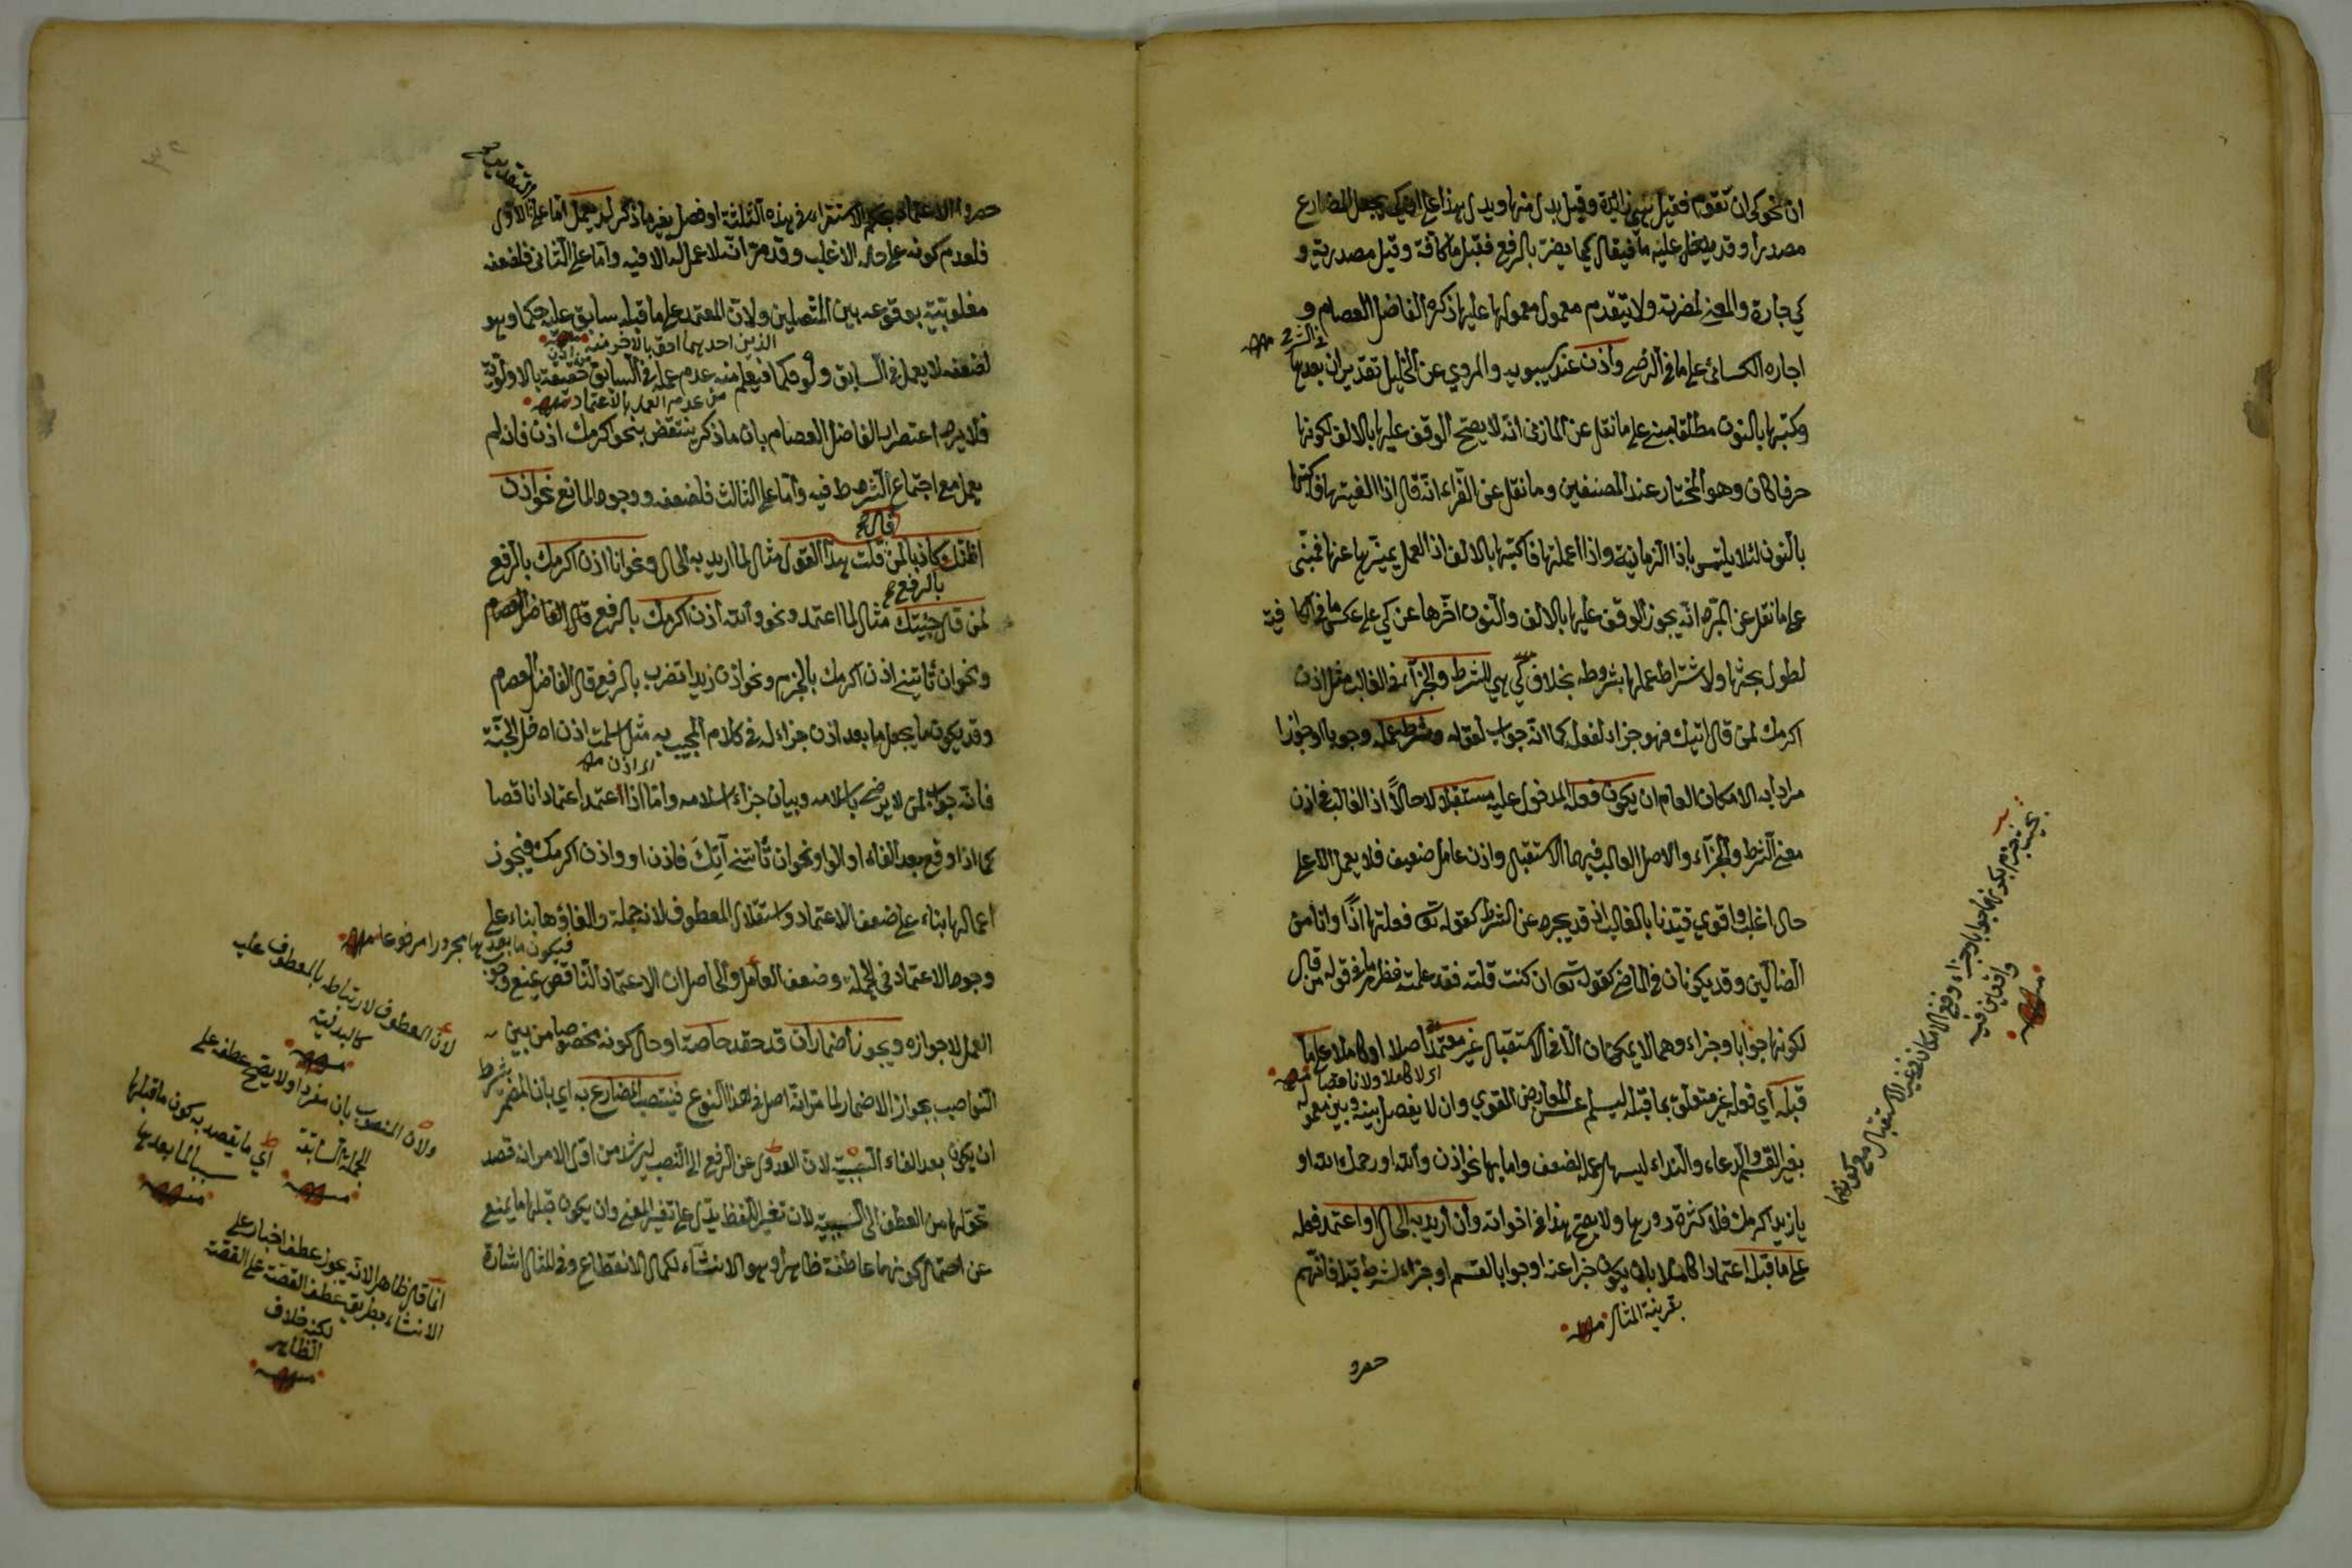 ان نحو كى ان تقوم فقيل هى زائدة وقيل بدل منها ويدل هذا على ان كى يجعل المضارع
مصدرا وقد يدخل عليه ما فيقال كيما يضر بالرفع فقيل ما كافة وقيل مصدرية و
كى جارة والمعنى لمضرته ولا يتقدم معمول معمولها عليها ذكره الفاضل العصام و
فى الشرح منه
اجازه الكسائى على ما فى الرضى واذن عند سيبويه والمروي عن الخليل تقدير ان بعدها
وكتبها بالنون مطلقا مبنى على ما نقل عن المازنى انه لا يصح الوقف عليها بالالف لكونها
حرفا كان وهو المختار عند المصنفين وما نقل عن الفراء انه قال اذا الغيتها فاكتبها
بالنون لئلا يلتبس باذا الزمانية واذا اعملتها فاكتبها بالالف اذ العمل يميزها عنها فمبنى
على ما نقل عن المبرد انه يجوز الوقف عليها بالالف والنون اخرها عن كي على عكس ما فى الكافية
لطول بحثها ولاشتراط عملها بشروط بخلاف كي هي للشرط والجزاء فى الغالب مثل اذن
اكرمك لمن قال اتيك فهو جزاء لفعله كما انه جواب لقوله وشرط عمله وجوبا او جوازا
مرادا به الامكان العام ان يكون فعله المدخول عليه مستقبلا لا حالاً اذ الغالب فى اذن
معنى الشرط والجزاء والاصل الغالب فيهما الاستقبال واذن عامل ضعيف فلا يعمل الا على
حال اغلب واقوي قيدنا بالغالب اذ قد يجرد عن الشرط كقوله تعالى فعلتها اذًا وانا من
الضالين وقد يكونان فى الماضى كقوله تعالى ان كنت قلته فقد علمته فظهر ما فى قوله من قال
لكونها جوابا وجزاء وهما لا يمكنان الا فى الاستقبال غير معتمد اصلا او كاملا على ما
اى لا كاملا ولا ناقصا منه
قبله اي فعله غير متعلق بما قبله ليسلم عن المعارض القوي وان لا يفصل بينه وبين معموله
بغير القسم والدعاء والنداء ليسهل عمله لضعف واما بها نحو اذن والله او رحمك الله او
يا زيد اكرمك فلا كثرة دورها ولا يصح هذا فى اخواته وان اريد به الحال او اعتمد فعله
على ما قبله اعتمادا كاملا بان يكون خبرا عنه او جوابا لقسم او جزاء لشرط قبله فانهم
بقرينة المثال منه
حصروا
يجب جزم بكونهما جوابا وجزاء وقع الامكان فى غير الاستقبال مع كونهما
واقعين فيه
منه
التقديرين
حصروا الاعتماد بحكم الاستقراء فى هذه الثلثة او فصل بغير ما ذكر لم يعمل اما على الاول
فلعدم كونه على حاله الاغلب وقد مر انه لا عمل له الا فيه واما على الثانى فلضعفه
مغلوبية بوقوعه بين المتصلين ولان المعتمد على ما قبله سابق عليه حكما وهو
الذين احدهما احق بالآخر منه
من اذن
لضعفه لا يعمل فى السابق ولو حكما فيعلم منه عدم عمله فى السابق حقيقة بالاولوية
من عدم العمل بالاعتماد منه
فلا يرد اعتراض الفاضل العصام بان ما ذكر ينتقض بنحو اكرمك اذن فانه لم
يعمل مع اجتماع الشروط فيه واما على الثالث فلضعفه ووجود المانع نحو اذن
قال
اظنك كاذبا لمن قلت هذا القول مثال لما اريد به الحال ونحو انا اذن اكرمك بالرفع
بالرفع
لمن قال جئتك مثال لما اعتمد ونحو والله اذن اكرمك بالرفع قال الفاضل العصام
ونحو ان تأتينى اذن اكرمك بالجزم ونحو اذن زيدا تضرب بالرفع قال الفاضل العصام
وقد يكون ما يجعل ما بعد اذن جزاء له فى كلام المجيب به مثل اسلمت اذن ادخل الجنة
اى اذن منه
فانه جواب لمن لا يرضى باسلامه وبيان جزاء اسلامه واما اذا اعتمد اعتمادا ناقصا
كما اذا وقع بعد الفاء او الواو نحو ان تأتنى آتِكَ فاذن او واذن اكرمك فيجوز
اعمالها بناء على ضعف الاعتماد واستقلال المعطوف لانه جملة والغاؤها بناء على
فيكون ما بعدها مجرورا مرفوعا منه
وجود الاعتماد فى الجملة وضعف العامل والحاصل ان الاعتماد الناقص يمنع وجوب
العمل لا جوازه ويجوز اضمار ان قد حقه خاصة او حال كونه مخصوصا من بين
النواصب بجواز الاضمار لما مر انه اصل فى هذا النوع فينتصب المضارع به اي بان المضمر بشرط
ان يكون بعد الفاء السببية لان العدول عن الرفع الى النصب ليرشد من اول الامر انه قصد
تحولها من العطف الى السببية لان تغير اللفظ يدل على تغير المعنى وان يكون قبلها ما يمنع
عن احتمال كونهما عاطفة ظاهرا وهو الانشاء لكمال الانقطاع وفى المثال اشارة
لان المعطوف لارتباطه بالمعطوف عليه
كالبدلية
منه
ولان المنصوب بان مفرد اولا يصح عطفه على
الجملة السابقة
منه
اي ما يقصد به كون ما قبلها
سببا لما بعدها
منه
انما قال ظاهرا لانه يجوز عطف اخبار على
الانشاء بطريق عطف القصة على القصة
لكنه خلاف
الظاهر
منه